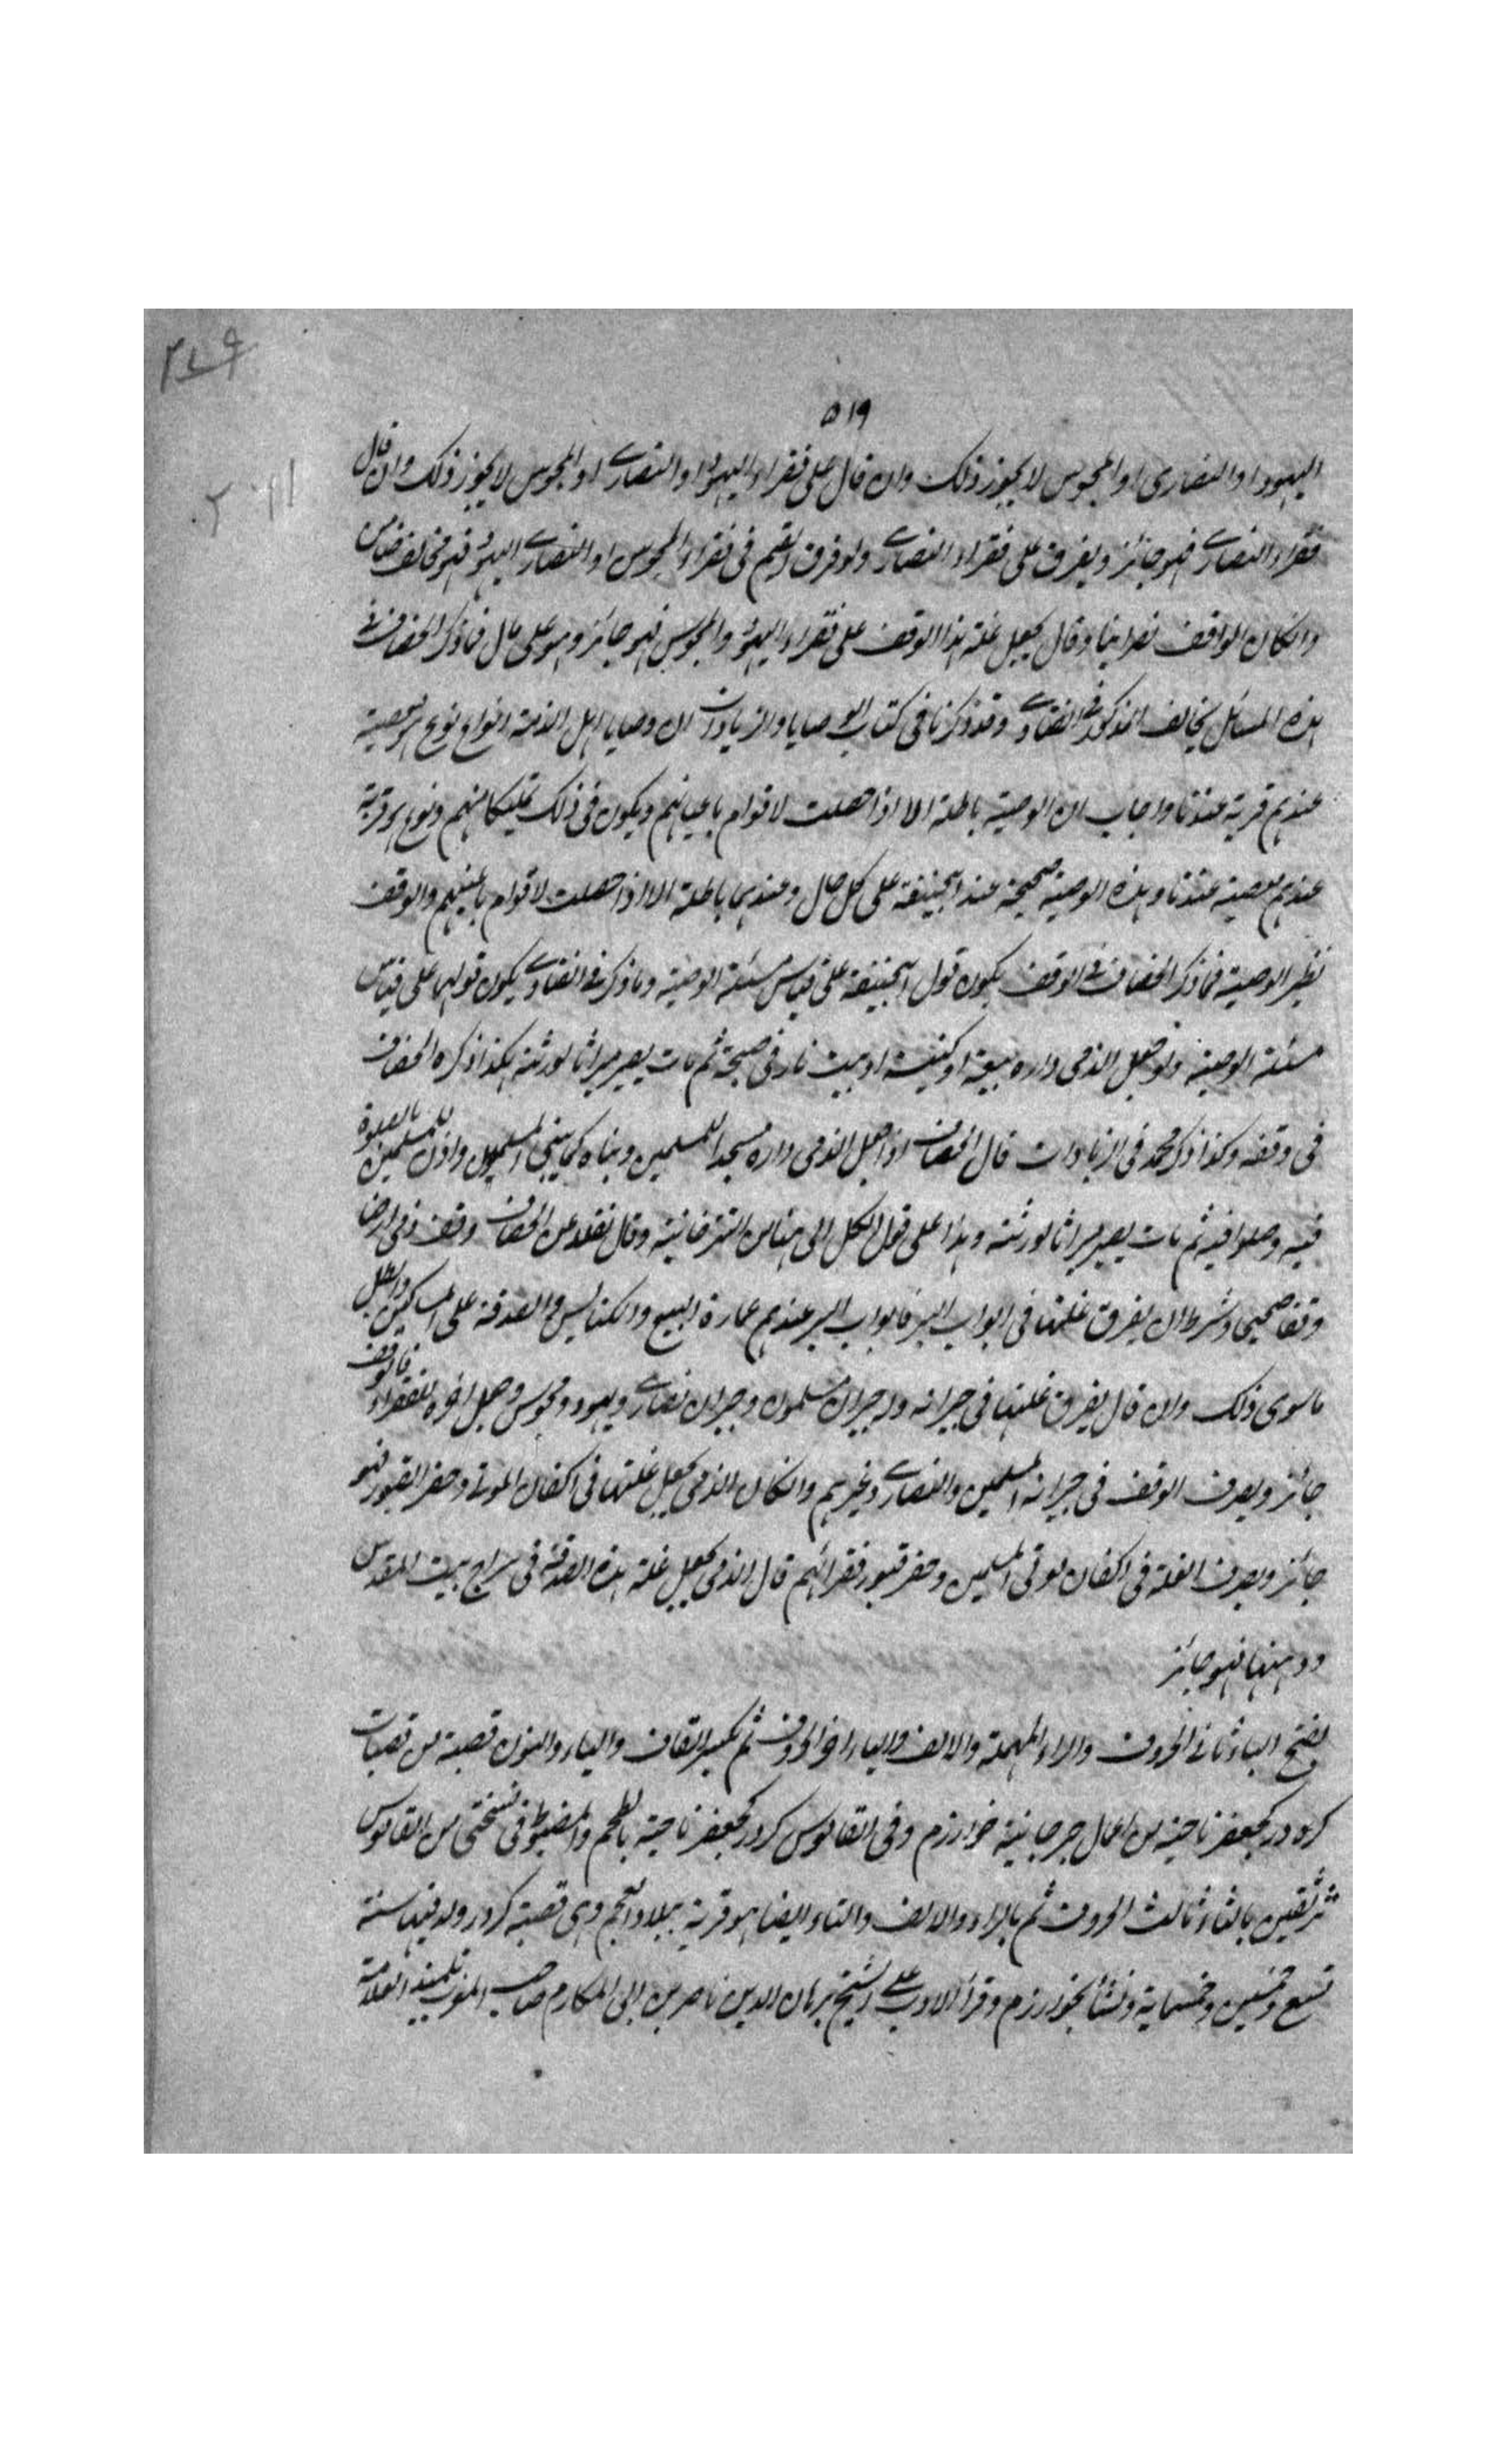 ٥١٩
اليهود او النصارى او المجوس لا يجوز ذلك وان قال على فقراء اليهود او النصارى او المجوس لا يجوز ذلك وان قال
فقراء النصارى فهو جائز ويفرق على فقراء النصارى ولو فرق القيم فى فقراء المجوس او النصارى اليهود فهو مخالف ضامن
وانكان الواقف نصرانيا وقال يجعل غلة هذا الوقف على فقراء اليهود والمجوس فهو جائز وهو على مال فما ذكر الخصاف فى
هذه المسائل يخالف المذكور فى الفتاوى وقد ذكرنا فى كتاب الوصايا والزيادات ان وصايا اهل الذمة انواع نوع هو معصية
عندهم قربة عندنا واجاب ان الوصية باطلة الا اذا حصلت لاقوام باعيانهم ويكون فى ذلك تمليكا منهم ونوع هو قربة
عندهم معصية عندنا وهذه الوصية صحيحة عند ابيحنيفة على كل حال وعندهما باطلة الا اذا حصلت لاقوام باعينهم والوقف
نظير الوصية فما ذكر الخصاف فى الوقف يكون قول ابيحنيفة على قياس مسئلة الوصية وما ذكر فى الفتاوى يكون قولهما على قياس
مسئلة الوصية ولو جعل الذمى داره بيعة او كنيسة او بيت نار فى صحة ثم مات يصير ميراثا لورثته هكذا ذكره الخصاف
فى وقفه وكذا ذكر محمد فى الزيادات قال الخصاف اذا جعل الذمى داره مسجدا للمسلمين وبناه كما يبنى المسلمون واذن للمسلمين بالصلوة
فيه وصلوا فيه ثم مات يصير ميراثا لورثته وهذا على قول الكل الى هنا من التتر خانية وقال نقلا عن الخصاف وقف ذمى ارضا
وقفا صحيحا وشرط ان يفرق غلتها فى ابواب البر فابواب البر عندهم عمارة البيع والكنايس والصدقة على المساكين وابطل
ما سوى ذلك وان قال يفرق غلتها فى جيرانه وله جيران مسلمون وجيران نصارى ويهود ومجوس وجعل اخره للفقراء فالوقف
جائز ويصرف الوقف فى جيرانه المسلمين والنصارى وغيرهم وانكان الذمى يجعل غلتها فى اكفان الموتى وحفر القبور فهو
جائز ويصرف الغلة فى اكفان موتى المسلمين وحفر قبور فقرائهم قال الذمى يجعل غلة هذه الصدقة فى سراج بيت المقدس
ودهنها فهو جائز
بفتح الباء ثانى الحروف والراء المهملة والالف والياء اخر الحروف ثم بكسر القاف والياء والنون قصبة من قصبات
كردر كجعفر ناحية من اعمال جرجانية خوارزم وفى القاموس كردر كجعفر ناحية بالعجم والمضبوط فى نسختى من القاموس
ثراثقين بالثاء ثالث الحروف ثم بالراء والالف والتاء ايضا هو قرية ببلاد العجم وهى قصبة كردر ولد فيها سنة
تسع وخمسين وخمسماية ونشأ بخوارزم وقرأ الادب على الشيخ برهان الدين ناصر بن ابى المكارم صاحب المغرب تلميذ العلامة